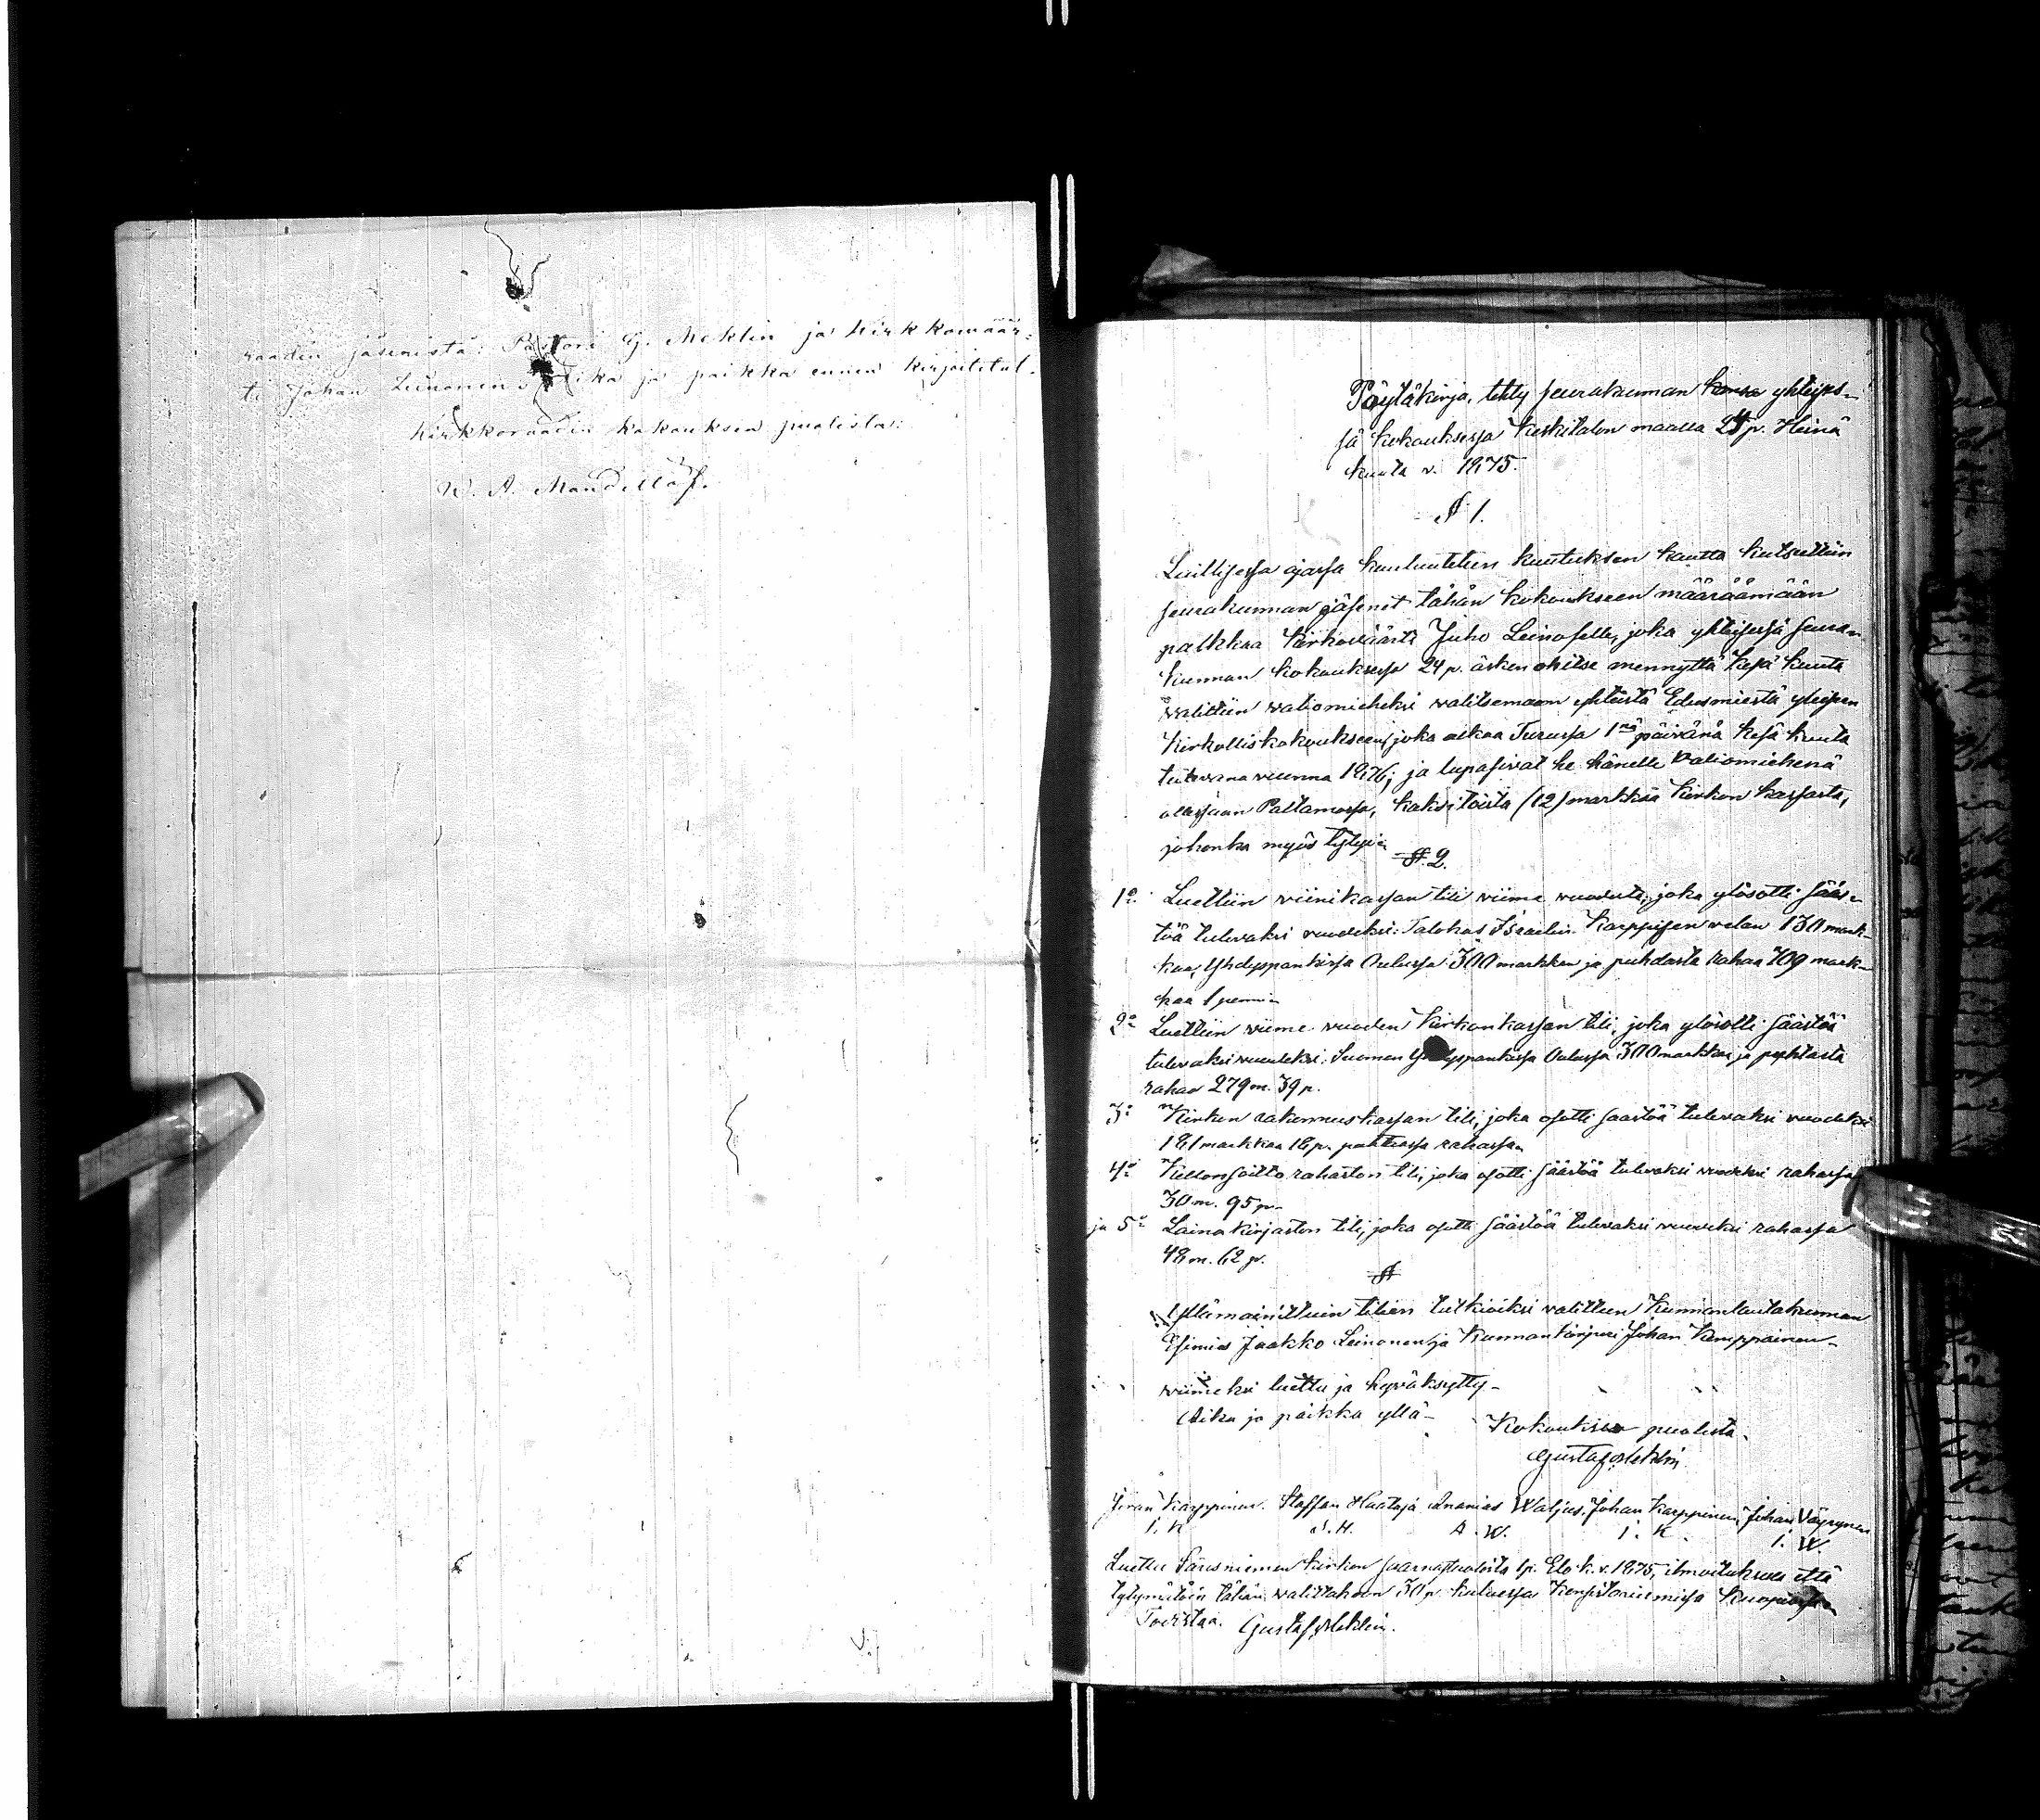 raadin jäsenistä: Pastori G. Meklin ja Kirkkomäär-
ti Johan Leinonen. Aika ja paikka ennen kirjoitetut.
Kirkkoraadin kokouksen puolista:
W. A. Mandellöf.
Pöytäkirja, tehty seurakunnan kansa yhteises-
sä kokouksessa Keskitalon maalla 25 p. Heinä
kuuta v. 1875.
§ 1.
Laillisessa ajassa kuulutetun kuutuksen kautta kutsuttiin
seurakunnan jäsenet tähän kokoukseen määräämään
palkkaa Kirkoväärti Juho Leinoselle, joka yhteisessä seura-
kunnan kokouksessa 24 p. äsken ohitse mennyttä Kesä kuuta
valittiin valiomieheksi valitsemaan yhteistä Edusmiestä yleisen
Kirkolliskokoukseen, joka alkaa Turussa 1nä päivänä Kesä kuuta
tulevana vuonna 1876; ja lupasivat he hänelle Valiomiehenä
ollessaan Paltamossa, kaksitoista (12) markkaa Kirkon kassasta,
johonka myös tytyi.
§ 2.
1o Luettiin viinikassan tili viime vuodelta, joka ylösotti sääs-
töä tulevaksi vuodeksi: Talokas Israelin Karppisen velan 130 mark-
kaa, Yhdyspankissa Oulussa 300 markkaa ja puhdasta rahaa 709 mark-
kaa 1 penni.
2o Luettiin viime vuoden Kirkonkassan tili, joka ylösotti säästöä
tulevaksi vuodeksi: Suomen Yhdyspankissa Oulussa 300 markkaa ja puhtasta
rahaa 279 m. 39 p.
3o Kirkon rakennuskassan tili, joka osotti säästöä tulevaksi vuodeksi
181 markkaa 18 p. puhtaassa rahassa.
4o Kellonsoitto rahaston tili, joka osotti säästöä tulevaksi vuodeksi rahassa
30 m. 95 p.
ja 5o Lainakirjaston tili, joka osotti säästöä tulevaksi vuodeksi rahassa
48 m. 62 p.
§
Yllämainittuin tilien tutkioiksi valittiin Kunnanlautakunnan
Esimies Jaakko Leinonen ja Kunnankirjuri Johan Kemppainen.
viimeksi luettu ja hyväksytty.
Aika ja paikka yllä.
Kokouksen puolesta.
Gustaf Meklin
Johan Karppinen. Staffan Haataja Ananias Waljus. Johan Karppinen, Johan Väyrynen
I. K. S. H. A. W. I. K. I. W.
Luettu Säresniemen kirkon saarnastuolista 1 p. Elo k. v. 1875, ilmoituksella että
tytymätöin tähän valittakoon 30 p. kuluessa Konsistoriumissa Kuopiossa
Todistaa. Gustaf Meklin.